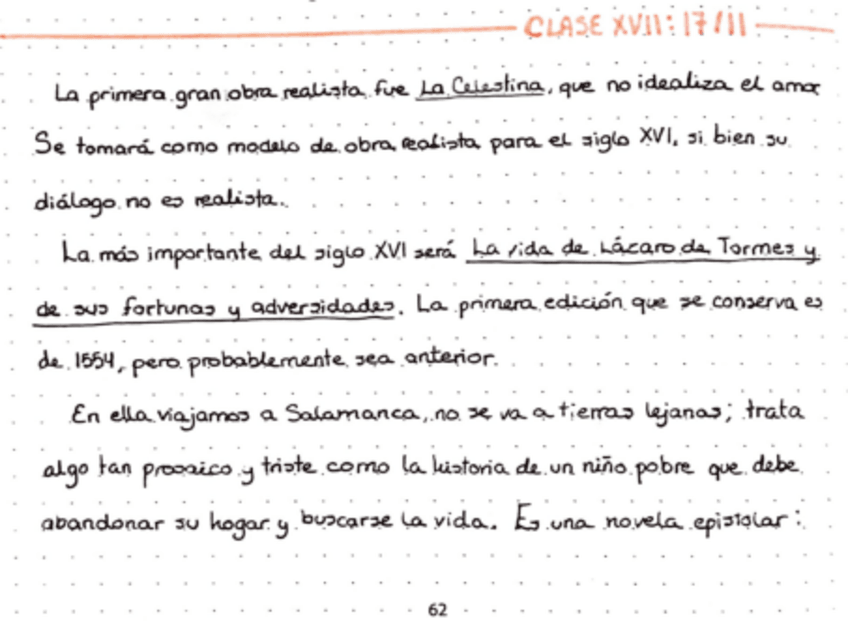 CLASE XVII: 17/11
La primera gran obra realista fue La Celestina, que no idealiza el amor
Se tomará como modelo de obra realista para el siglo XVI, si bien su
diálogo no es realista.
La más importante del siglo XVI será La vida de Lázaro de Tormes y
de sus fortunas y adversidades. La primera edición que se conserva es
de 1554, pero probablemente sea anterior.
En ella viajamos a Salamanca, no se va a tierras lejanas; trata
algo tan prosaico y triste como la historia de un niño pobre que debe
abandonar su hogar y buscarse la vida. Es una novela epistolar:
62